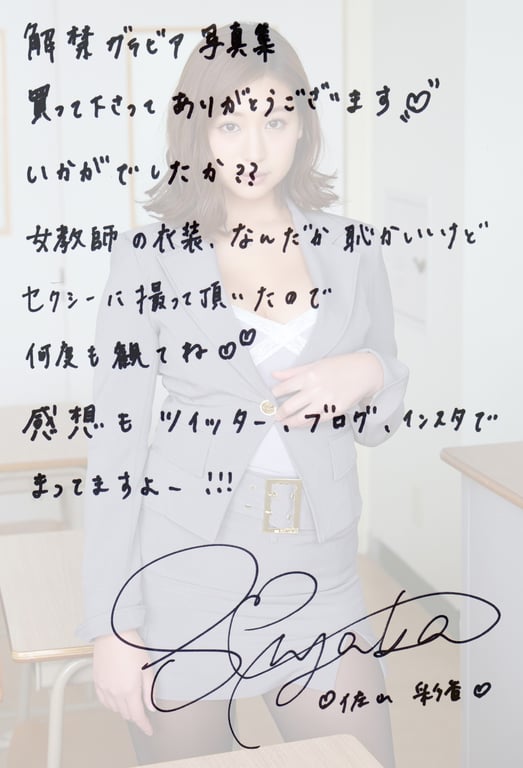 解禁グラビア写真集
買って下さってありがとうございます♡
いかがでしたか??
女教師の衣装、なんだか恥かしいけど
セクシーに撮って頂いたので
何度も観てね♡♡
感想もツイッター、ブログ、インスタで
まってますよー!!!
Sayaka
♡佐山 彩香♡